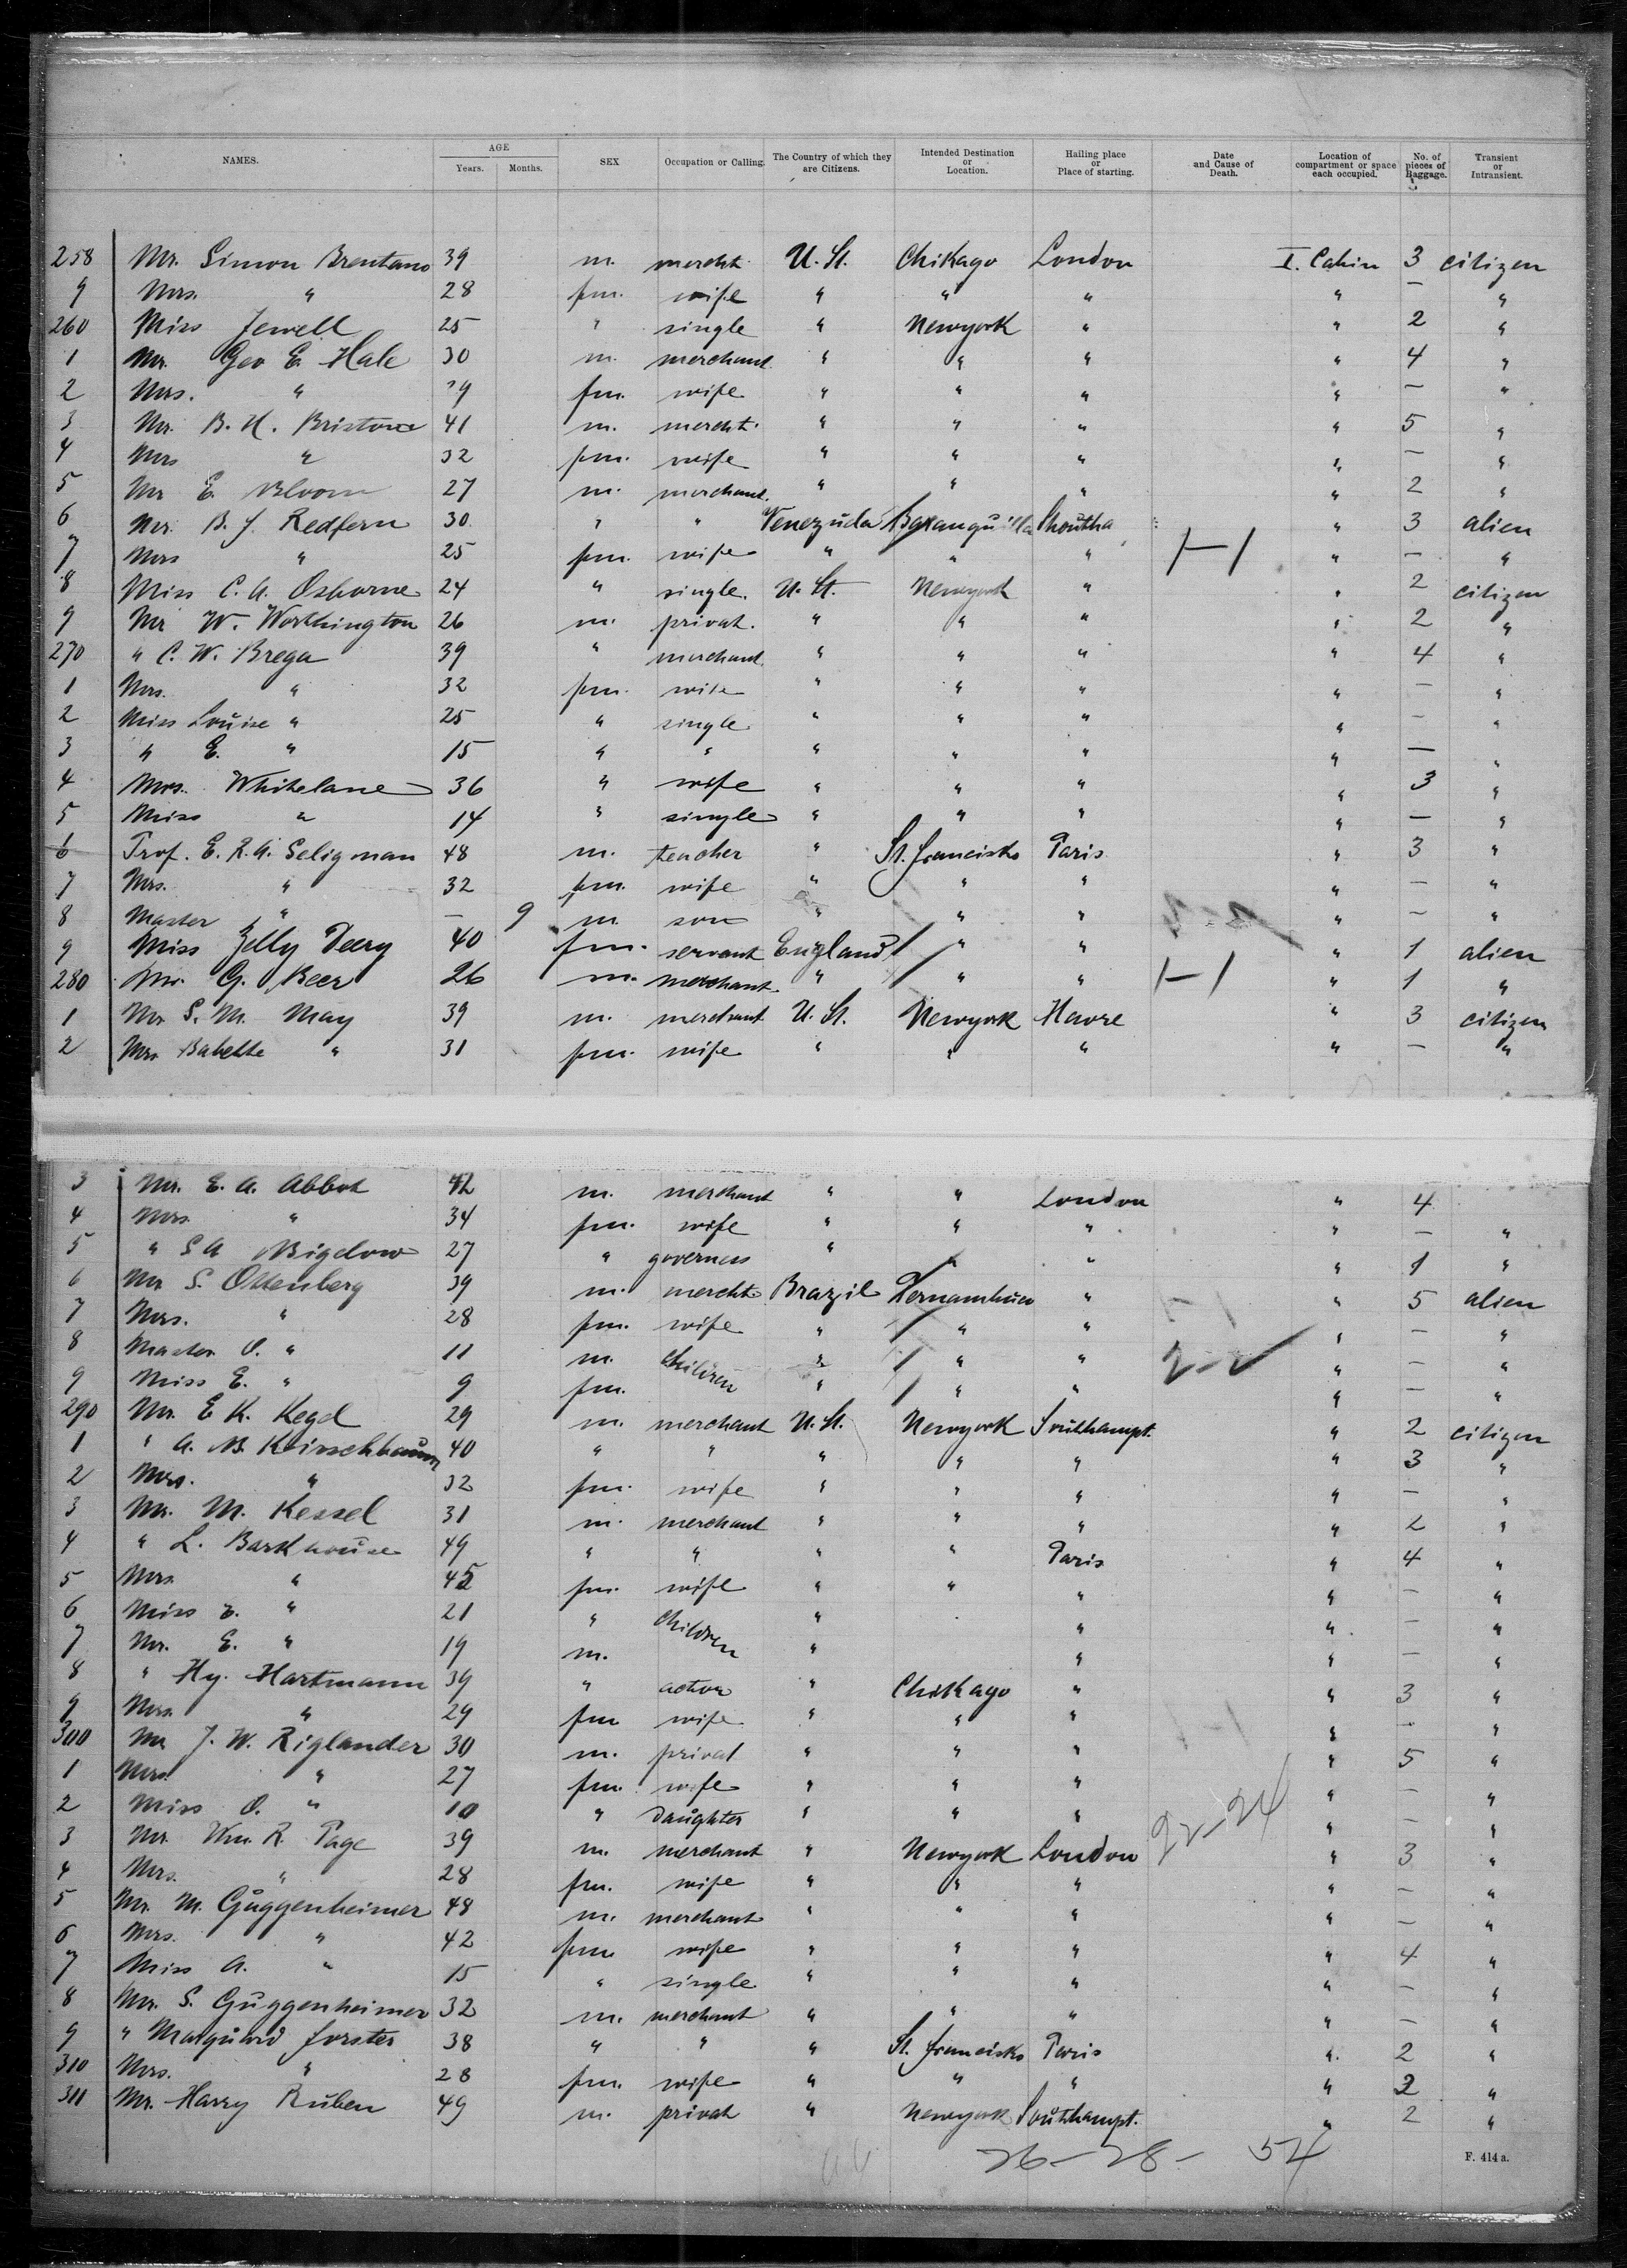 NAMES. AGE Years. Months. SEX Occupation or Calling. The Country of which they are Citizens. Intended Destination or Location. Hailing place or Place of starting. Date and Cause of Death. Location of compartment or space each occupied. No. of pieces of Baggage. Transient or Intransient.
258 Mr. Simon Brentano 39 m. mercht. U. St. Chikago London I. Cabin 3 citizen
9 Mrs. " 28 fm. wife " " " " — "
260 Miss Jewell 25 " single " Newyork " " 2 "
1 Mr. Geo E. Hale 30 m. merchant. " " " " 4 "
2 Mrs. " 29 fm. wife " " " " — "
3 Mr. B. H. Bristow 41 m. mercht. " " " " 5 "
4 Mrs " 32 fm. wife " " " " — "
5 Mr E. Bloom 27 m. merchant. " " " " 2 "
6 Mr. B. J. Redfern 30. " " Venezuela Baranquilla Shoutha " 3 alien
7 Mrs " 25 fm. wife " " " 1-1 " — "
8 Miss C. A. Osborne 24 " single. U. St. Newyork " " 2 citizen
9 Mr W. Worthington 26 m. privat. " " " " 2 "
270 " C. W. Brega 39 " merchant. " " " " 4 "
1 Mrs. " 32 fm. wife " " " " — "
2 Miss Louise " 25 " single " " " " — "
3 " E. " 15 " " " " " " — "
4 Mrs. Whitelane 36 " wife " " " " 3 "
5 Miss " 14 " single " " " " — "
6 Prof. E. R. A. Seligman 48 m. teacher " St. francisko Paris " 3 "
7 Mrs. " 32 fm. wife " " " " — "
8 Master " — 9 m. son " " " " — "
9 Miss Zelly Deery 40 fm. servant England " " " 1 alien
280 Mr. G. Beer 26 m. merchant " " " 1-1 " 1 "
1 Mr S. M. May 39 m. merchant U. St. Newyork Havre " 3 citizen
2 Mrs Babette " 31 fm. wife " " " " — "
3 Mr. E. A. Abbot 42 m. merchant " " London " 4
4 Mrs. " 34 fm. wife " " " " — "
5 " S A Bigelow 27 " governess " " " " 1 "
6 Mr S. Ostenberg 39 m. mercht. Brazil Pernambuco " " 5 alien
7 Mrs. " 28 fm. wife " " " " — "
8 Master O. " 11 m. children " " " 2-2 " — "
9 Miss E. " 9 fm. " " " " — "
290 Mr. E K. Kegel 29 m. merchant U. St. Newyork Southampt. " 2 citizen
1 " A. B. Kirschbaum 40 " " " " " " 3 "
2 Mrs. " 32 fm. wife " " " " — "
3 Mr. M. Kessel 31 m. merchant " " " " 2 "
4 " L. Barkhouse 49 " " " " Paris " 4 "
5 Mrs. " 45 fm. wife " " " " — "
6 Miss E. " 21 " children " " " — "
7 Mr. E. " 19 m. " " " — "
8 " Hy. Hartmann 39 " actor " Chikago " " 3 "
9 Mrs. " 29 fm wife " " " " — "
300 Mr J. W. Riglander 30 m. privat " " " " 5 "
1 Mrs. " 27 fm. wife " " " " — "
2 Miss O. " 10 " daughter " " " " — "
3 Mr. Wm. R. Page 39 m. merchant " Newyork London 22-24 " 3 "
4 Mrs. " 28 fm. wife " " " " — "
5 Mr. M. Guggenheimer 48 m. merchant " " " " — "
6 Mrs. " 42 fm. wife " " " " 4 "
7 Miss A. " 15 " single " " " " — "
8 Mr. S. Guggenheimer 32 m. merchant " " " " — "
9 " Marquard forster 38 " " " St. francisko Paris " 2 "
310 Mrs. " 28 fm. wife " " " " 2 "
311 Mr. Harry Ruben 49 m. privat " Newyork Southampt. " 2 "
26-28- 54
F. 414 a.